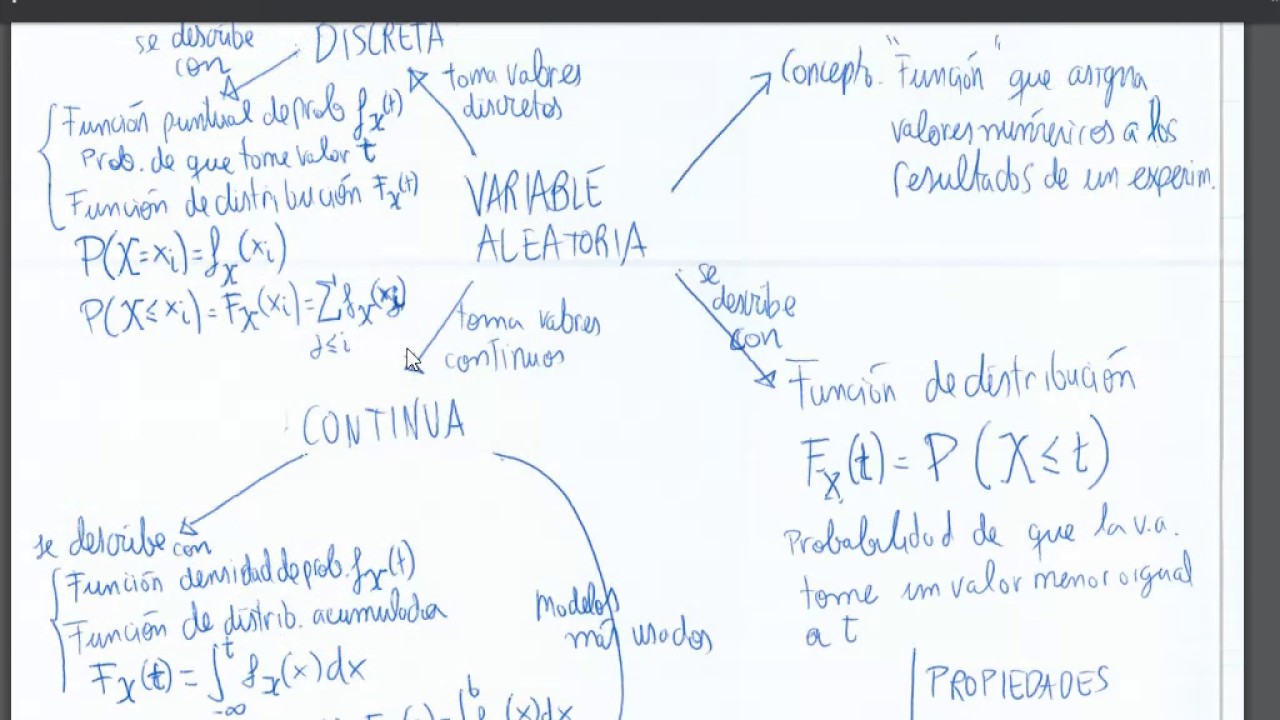 se describe
con
DISCRETA
toma valores
discretos
Función puntual de prob f_X(t)
Prob. de que tome valor t
Función de distribución F_X(t)
P(X=x_i)=f_X(x_i)
P(X≤x_i)=F_X(x_i)=∑ f_X(x_j)
j≤i
VARIABLE
ALEATORIA
Concepto. "Función" que asigna
valores numéricos a los
resultados de un experim.
se
describe
con
Función de distribución
F_X(t)=P(X≤t)
Probabilidad de que la v.a.
tome un valor menor o igual
a t
PROPIEDADES
toma valores
continuos
CONTINUA
se describe con
Función densidad de prob. f_X(t)
Función de distrib. acumulada
F_X(t)=∫_{-∞}^{t} f_X(x)dx
Modelos
más usados